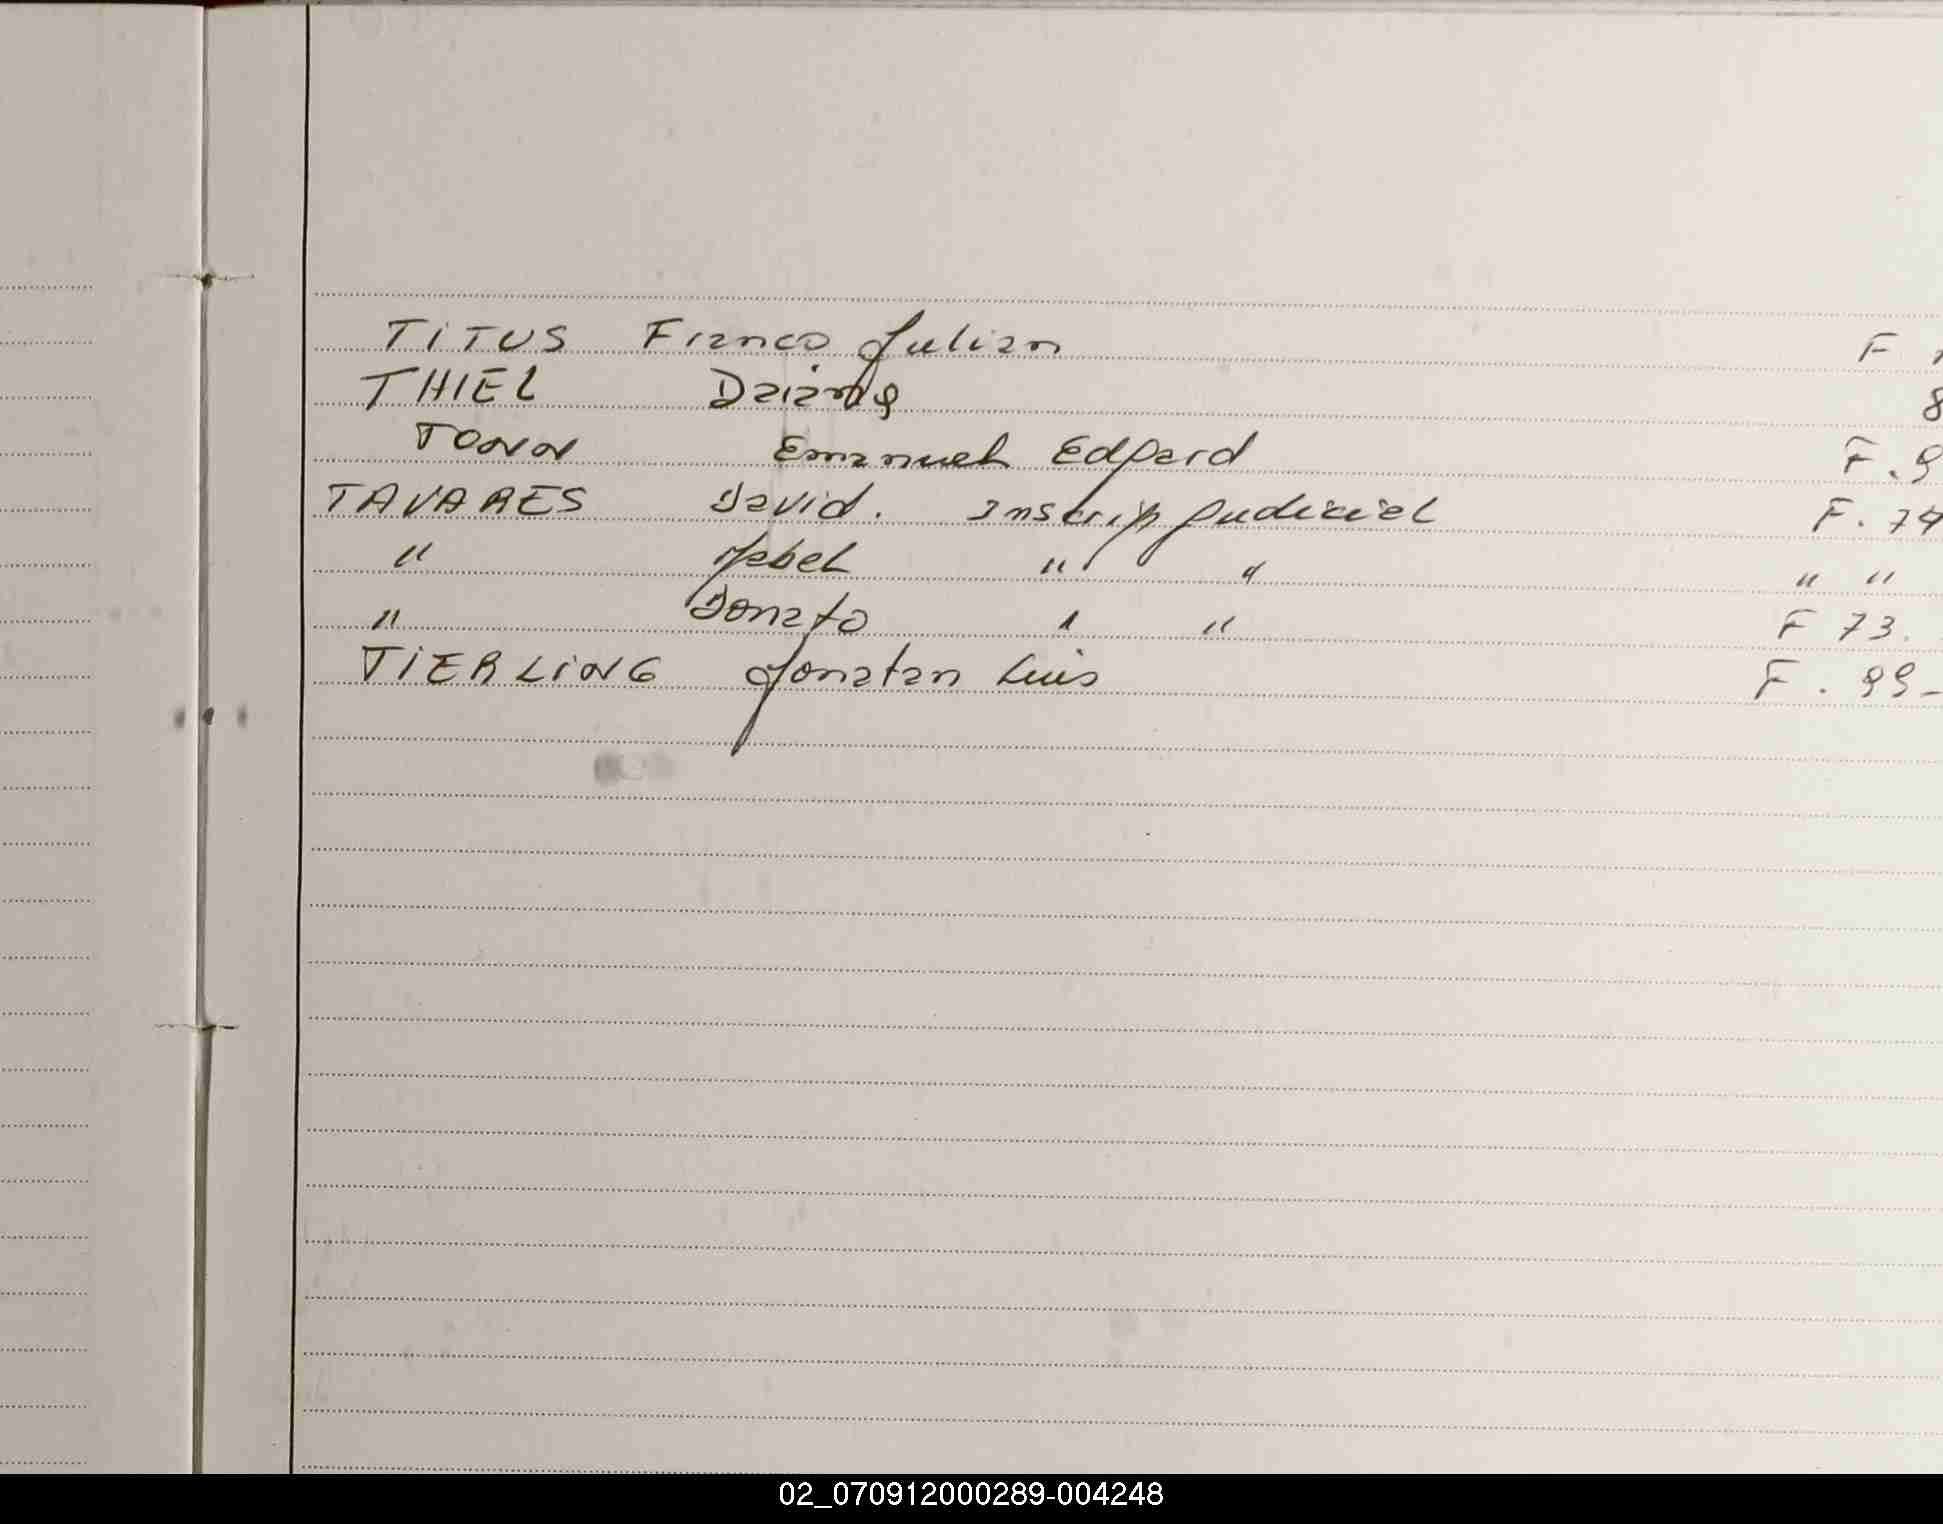 TiTUS Franco Julian F
THIEL Daiana 8
TONN Emanuel Edgard F. 9
TAVARES David. Inscrip Judicial F. 74
" Mabel " " " "
" Donato " " F 73.
TiERLiNG Jonatan Luis F. 99-
02_070912000289-004248